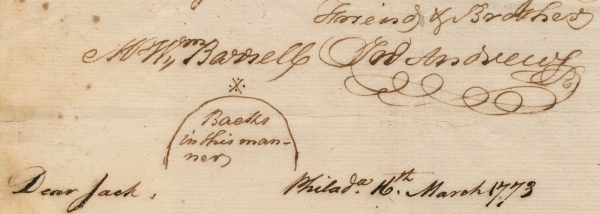 Friend & Brother
Mr. Wm. Barrell Jno Andrews
Backs
in this man-
ner
Dear Jack, Philada. 16th. March 1773